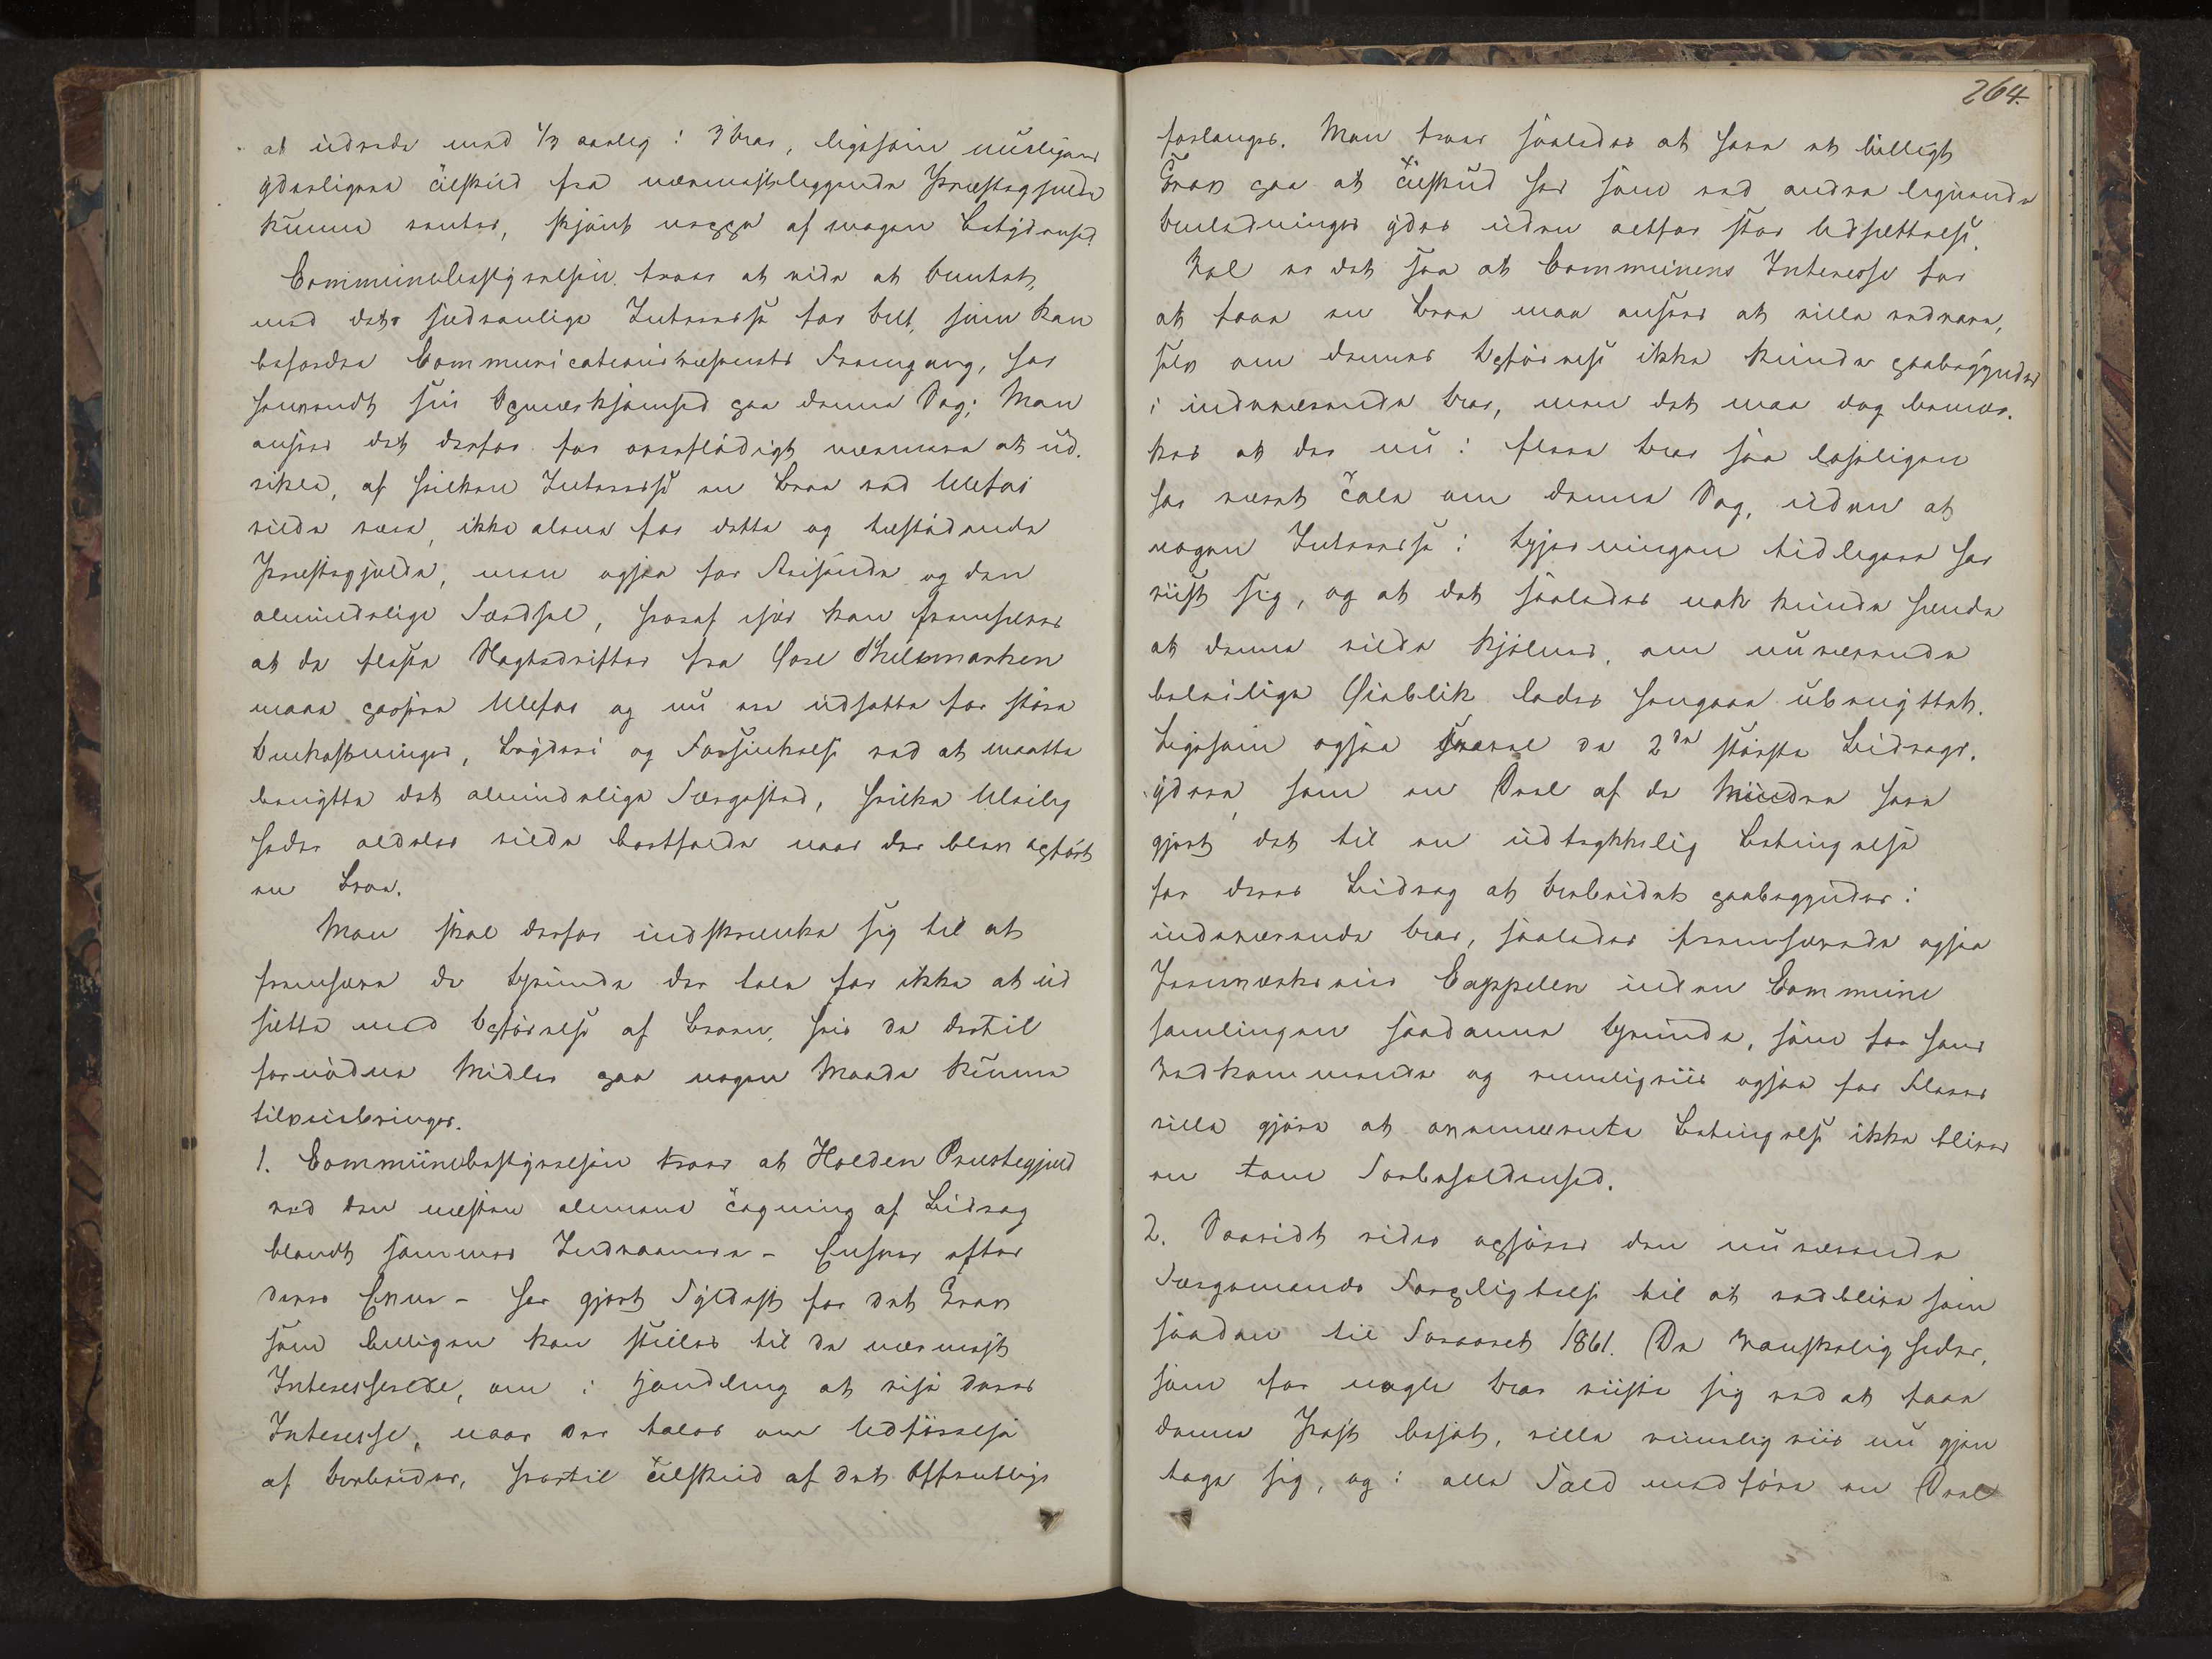 at udrede med 1/3 aarlig i 3 Aar, ligesom muligens
yderligere Tilskud fra nærmestliggende Præstegjelde
kunne ventes, skjønt neppe af megen Betydenhed.
Communebestyrelsen troer at vide at Amtet,
med dets sædvanlige Interesse for Alt, som kan
befordre Communicationsvæsenets Fremgang, har
henvendt sin Opmærksomhed paa denne Sag; Man
anseer det derfor for overflødigt nærmere at ud-
vikle, af hvilken Interesse en Bro ved Ulefos
vilde være, ikke alene for dette og tilstødende
Præstegjelde, men ogsaa for Reisende og den
almindelige Færdsel, hvoraf især kan fremhæves
at de fleste Flagtedrifter fra Øvre Thelemarken
maae passere Ulefos og nu ere udsatte for større
Omkostninger, Bryderi og Forsinkelse ved at maatte
benytte det almindelige Færgested, hvilke Uleilig
heder aldeles vilde bortfalde naar der blev opført
en Bro.
Man skal derfor indskrænke sig til at
fremhæve de Grunde der tale for ikke at ud
sætte med Opførelse af Broen, hvis de dertil
fornødne Midler paa nogen Maade kunne
tilveiebringes.
1. Communebestyrelsen troer at Holden Præstegjeld
ved den næsten almene Tegning af Bidrag
blandt sammes Indvaanere - Enhver efter
deres Evne - har gjort Fyldest for det Krav
som billigen kan stilles til de nærmest
Interesserede, om i Handling at vise deres
Interesse, naar der tales om Udførelse
af Arbeider, hvortil Tilskud af det Offentlige
264.
forlanges. Man troer saaledes at have et billigt
Krav paa at Tilskud her som ved andre lignende
Anledninger ydes uden altfor stor Udsættelse.
Vel er det saa at Communens Interesse for
at faae en Bro maa ansees at ville vedvare,
selv om dennes Opførelse ikke kunde paabegyndes
i indeværende Aar, men det maa dog bemær-
kes at der nu i flere Aar saa leiligen
har været Tale om denne Sag, uden at
nogen Interesse i Gjerningen tidligere har
viist sig, og at det saaledes nok kunde hende
at denne vilde kjølnes, om nuværende
beleilige Øieblik lades hengaae ubenyttet.
Ligesom ogsaa saavel de 2de største Bidrags-
ydere, som en Deel af de Mindre have
gjort det til en udtrykkelig Betingelse
for deres Bidrag at Arbeidet paabegyndes i
indeværende Aar, saaledes fremhævede ogsaa
Jernværkseier Cappelen inden Commune
samlingen saadanne Grunde, som for hans
Vedkommende og rimeligviis ogsaa for Fleres
ville gjøre at ovennævnte Betingelse ikke bliver
en tom Forbeholdenhed.
2. Saavidt vides ophører den nuværende
Færgemands Forpligtelse til at vedblive som
saadan til Foraaret 1861. De Vanskeligheder,
som for nogle Aar viiste sig ved at faae
denne Post besat, ville rimeligviis nu gjen
tage sig, og i alle Fald medføre en Deel